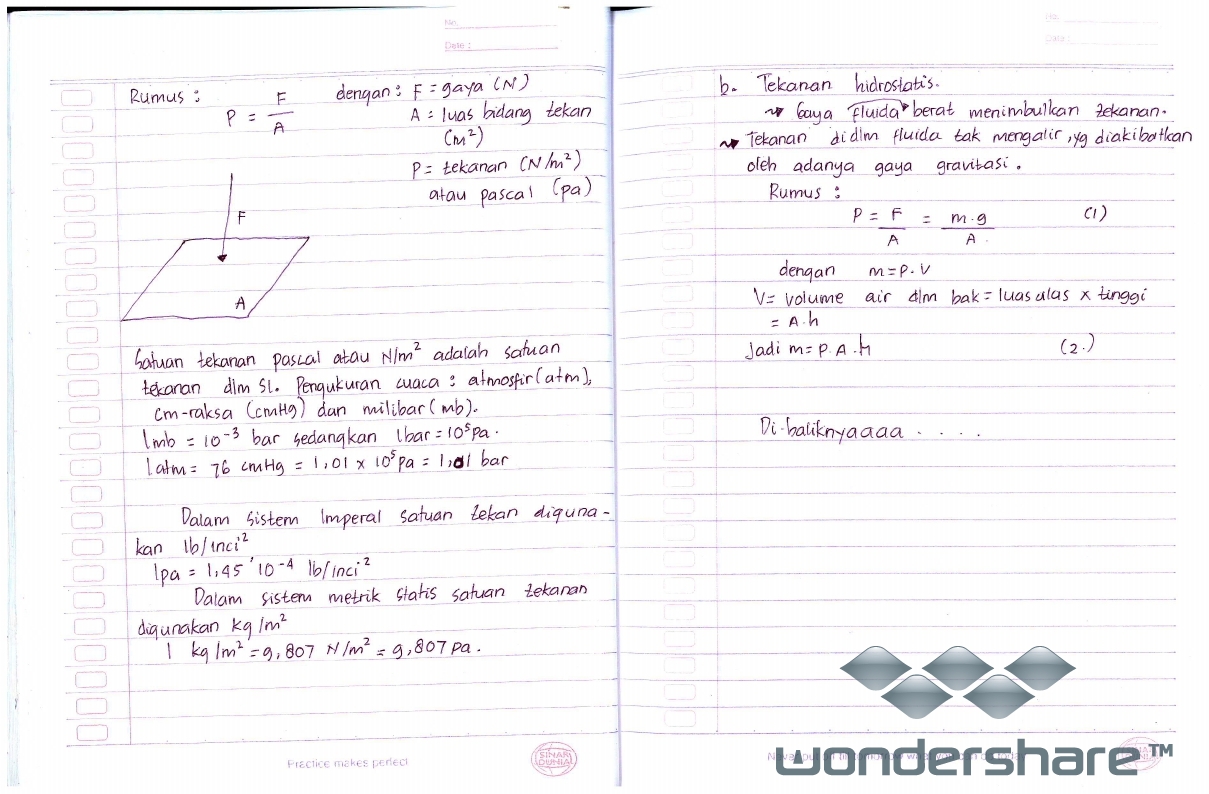 No.
Date :
Rumus : P = F/A dengan : F = gaya (N)
A = luas bidang tekan
(m²)
P = tekanan (N/m²)
atau pascal (pa)
F
A
Satuan tekanan pascal atau N/m² adalah satuan
tekanan dlm SI. Pengukuran cuaca : atmosfir (atm),
cm-raksa (cmHg) dan milibar (mb).
1mb = 10⁻³ bar sedangkan 1bar = 10⁵ pa.
1atm = 76 cmHg = 1,01 x 10⁵ pa = 1,01 bar
Dalam sistem Imperal satuan tekan diguna-
kan lb/inci²
1pa = 1,45 ' 10⁻⁴ lb/inci²
Dalam sistem metrik statis satuan tekanan
digunakan kg/m²
1 kg/m² = 9,807 N/m² = 9,807 pa.
Practice makes perfect
SINAR DUNIA
No.
Date :
b. Tekanan hidrostatis.
Gaya fluida berat menimbulkan tekanan.
Tekanan didlm fluida tak mengalir, yg diakibatkan
oleh adanya gaya gravitasi.
Rumus :
P = F/A = m.g/A. (1)
dengan m = P.V
V = volume air dlm bak = luas alas x tinggi
= A.h
Jadi m = P.A.h (2.)
Di baliknyaaaa . . . .
wondershare™